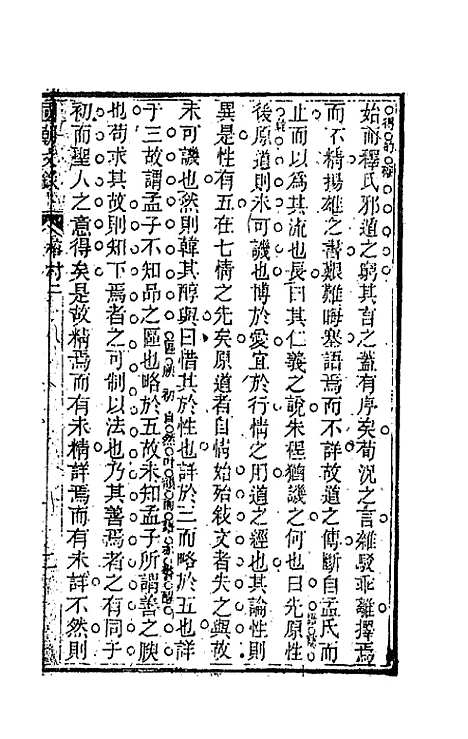 始而釋氏邪道之窮其言之蓋有序矣荀況之言雜駁乖離擇焉
而不精揚雄之書艱難晦塞語焉而不詳故道之傳斷自孟氏而
止而以為其流也長曰其仁義之說朱程猶譏之何也曰先原性
後原道則未可譏也博於愛宜於行情之用道之經也其論性則
異是性有五在七情之先矣原道者自情始殆敘文者失之與故
未可譏也然則韓其醇與曰惜其於性也詳於三而略於五也詳
于三故謂孟子不知品之區也略於五故未知孟子所謂善之腴
也苟求其故則知下焉者之可制以法也乃其善焉者之有同乎
初而聖人之意得矣是故精焉而有未精詳焉而有未詳不然則
國朝文錄
榕村二